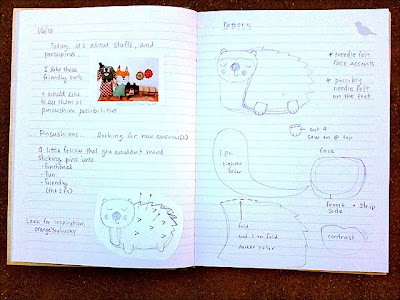 Today, it's about stuffs, and
porcupines...
I like these
friendly softs
+ would like
to see them as
pincushion possibilities
... Pincushions...... looking for new avenue(s)
A little fellow that you wouldn't mind
sticking pins into
- functional
- fun
- friendly
Look for inspiration
orangeyoulucky
Pattern
* Needle felt
face accents
* possibly
needle felt
on the feet
cut 4
sew on @ top
1 pc
lighter
color
face
front + strip
side
fold
cut 1 on fold
darker color
contrast